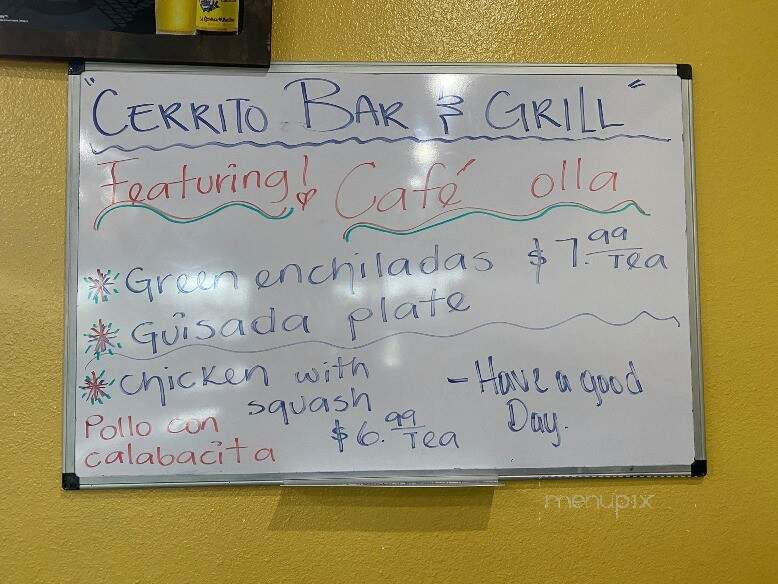 "CERRITO BAR & GRILL"
Featuring! Café olla
Green enchiladas $7.99 Tea
Guisada plate
chicken with squash
$6.99 Tea
Pollo con calabacita
- Have a good Day.
menupix